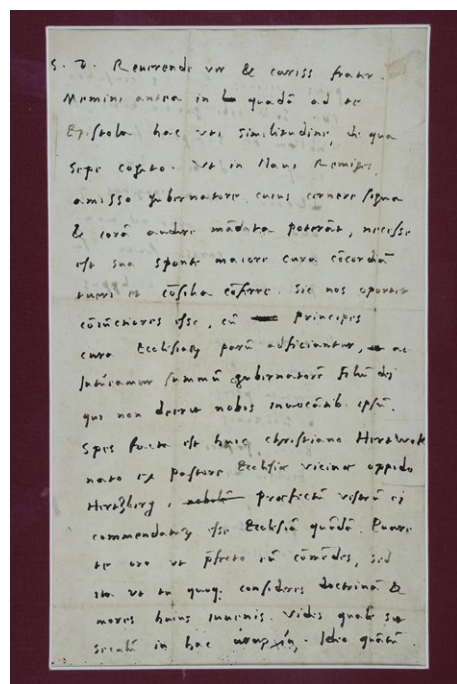 S. D. Reverende vir & cariss frater.
Memini antea in quadā ad te
Epistola hac uti similitudine, de qua
sepe cogito. Ut in Naui Remiges,
amisso gubernatore cuius cernere signa
& corā audire mādata poterāt, necesse
est sua sponte maiore cura cōcordiā
tueri et cōsilia cōferre. Sic nos oportet
cōiūctiores esse, cū principes
cura Ecclesiarum parū adficiantur, ac
Intueamur summū gubernatorē Filiū dei
qui non deerit nobis invocātib. ipsū.
Spes facta est huic Christiano
nato ex pastore Ecclesiæ vicinæ oppido
Hertzberg, præfectū ei
commendaturū esse Ecclesiā quādā. Quare
te oro ut eū cōmēdes, sed
ita ut tu quoq. consideres doctrinā &
mores huius iuuenis. Vides qualis sit
in hac. Ideo